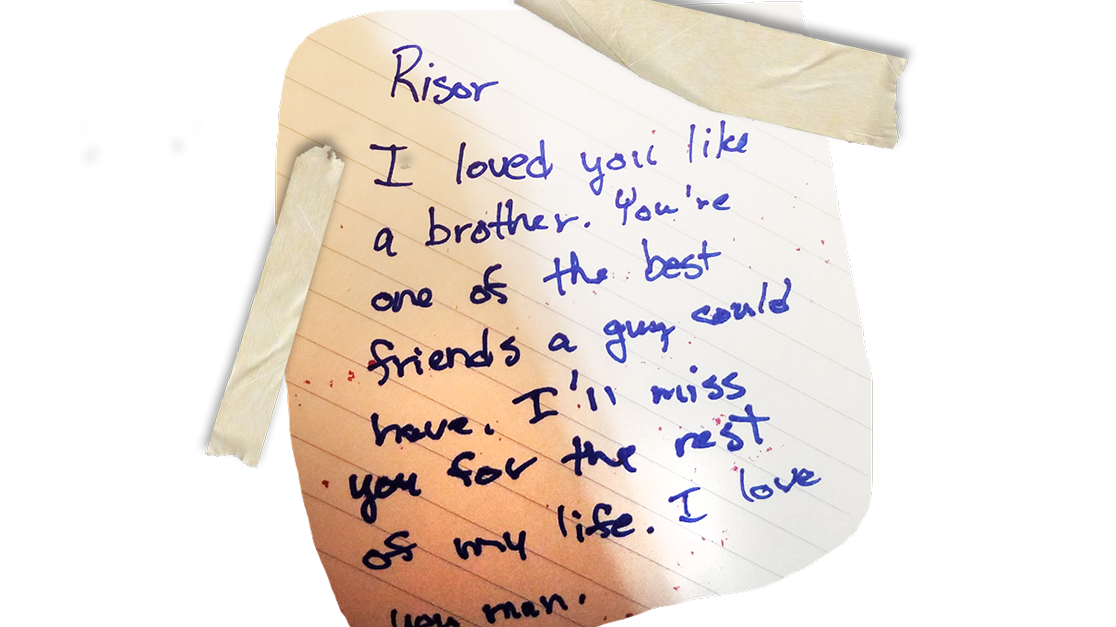 Risor
I loved you like
a brother. You're
one of the best
friends a guy could
have. I'll miss
you for the rest
of my life. I love
you man.